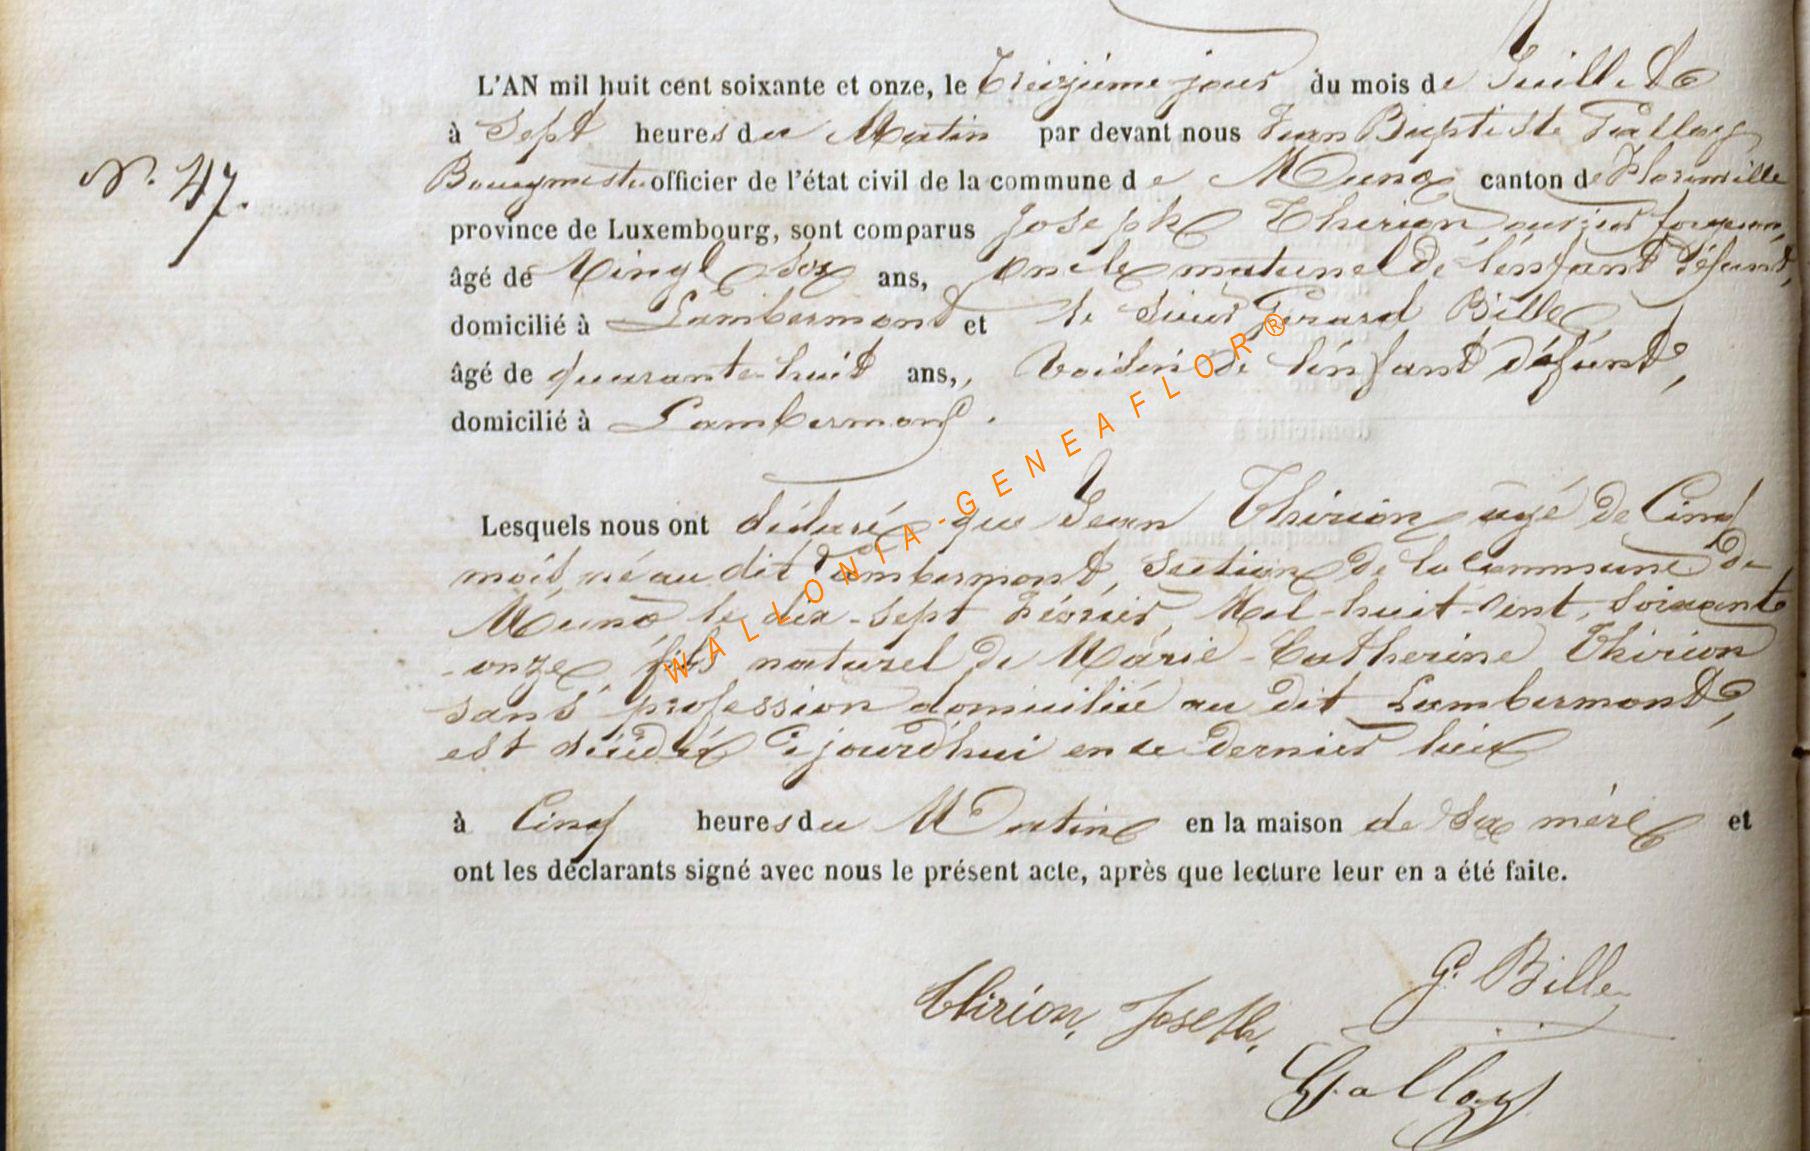 L'AN mil huit cent soixante et onze, le Treizième jour du mois de Juillet
à Sept heures du Matin par devant nous Jean Baptiste Galloy
N°. 47. Bourgmestre officier de l'état civil de la commune de Muno canton de Florenville
province de Luxembourg, sont comparus Joseph Thirion, ouvrier forgeron,
âgé de Vingt six ans, oncle maternel de l'enfant défunt,
domicilié à Lambermont et le Sieur Gérard Bille
âgé de quarante-huit ans, voisin de l'enfant défunt,
domicilié à Lambermont.
Lesquels nous ont déclaré que Jean Thirion agé de Cinq
mois, né au dit Lambermont, Section de la Commune de
Muno le dix-sept Février, Mil-huit-cent, soixante
-onze, fils naturel de Marie-Catherine Thirion
sans profession domiciliée au dit Lambermont,
est décédé ajourd'hui en ce dernier lieu
à Cinq heures du Matin en la maison de Sa mère et
ont les déclarants signé avec nous le présent acte, après que lecture leur en a été faite.
G. Bille
thirion, Joseph,
Galloy
WALLONIA-GENEAFLOR®